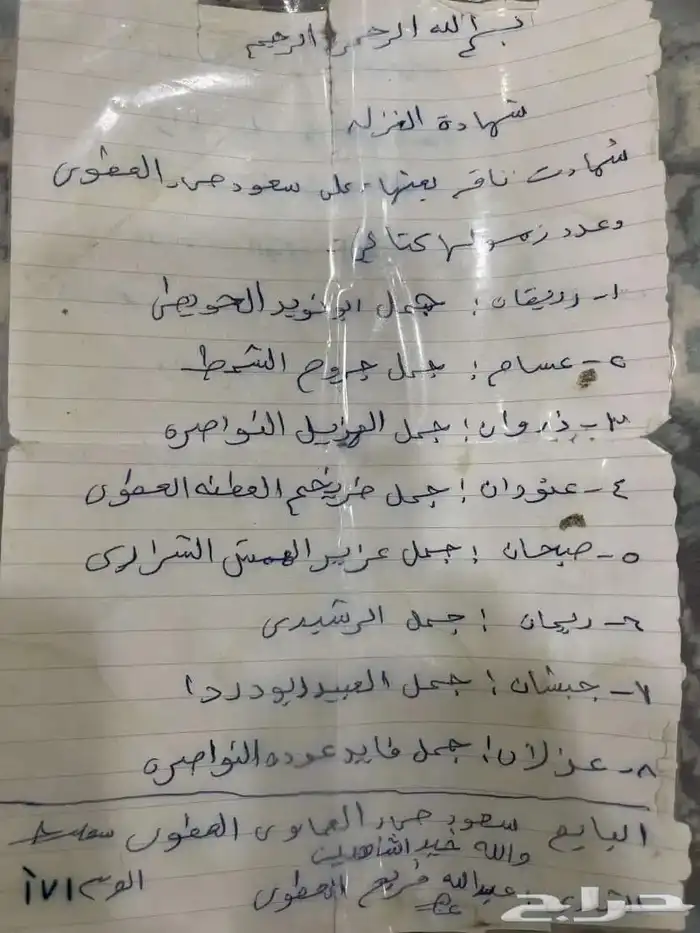 بسم الله الرحمن الرحيم
شهادة الغزله
شهادت ناقر بعتها على سعود حماد العطوى
وعدد زمولها كتالي
١- دنيقان : جمل ابو نويد الحويطي
٢- عسام : جمل جروح الشمط
٣- ذروان : جمل الهزيل النواصره
٤- عنودان : جمل ضريغم العطنه العطوى
٥- صبحان : جمل عزيز الهمش الشرارى
٦- ريحان : جمل الرشيدى
٧- جبشان : جمل العبيد ابودردا
٨- عزلان : جمل فايد عوده النواصره
البايع سعود حماد العطوى
والله خير الشاهدين
عبدالله فريج العطوى
الوسم ١٧١
حراج